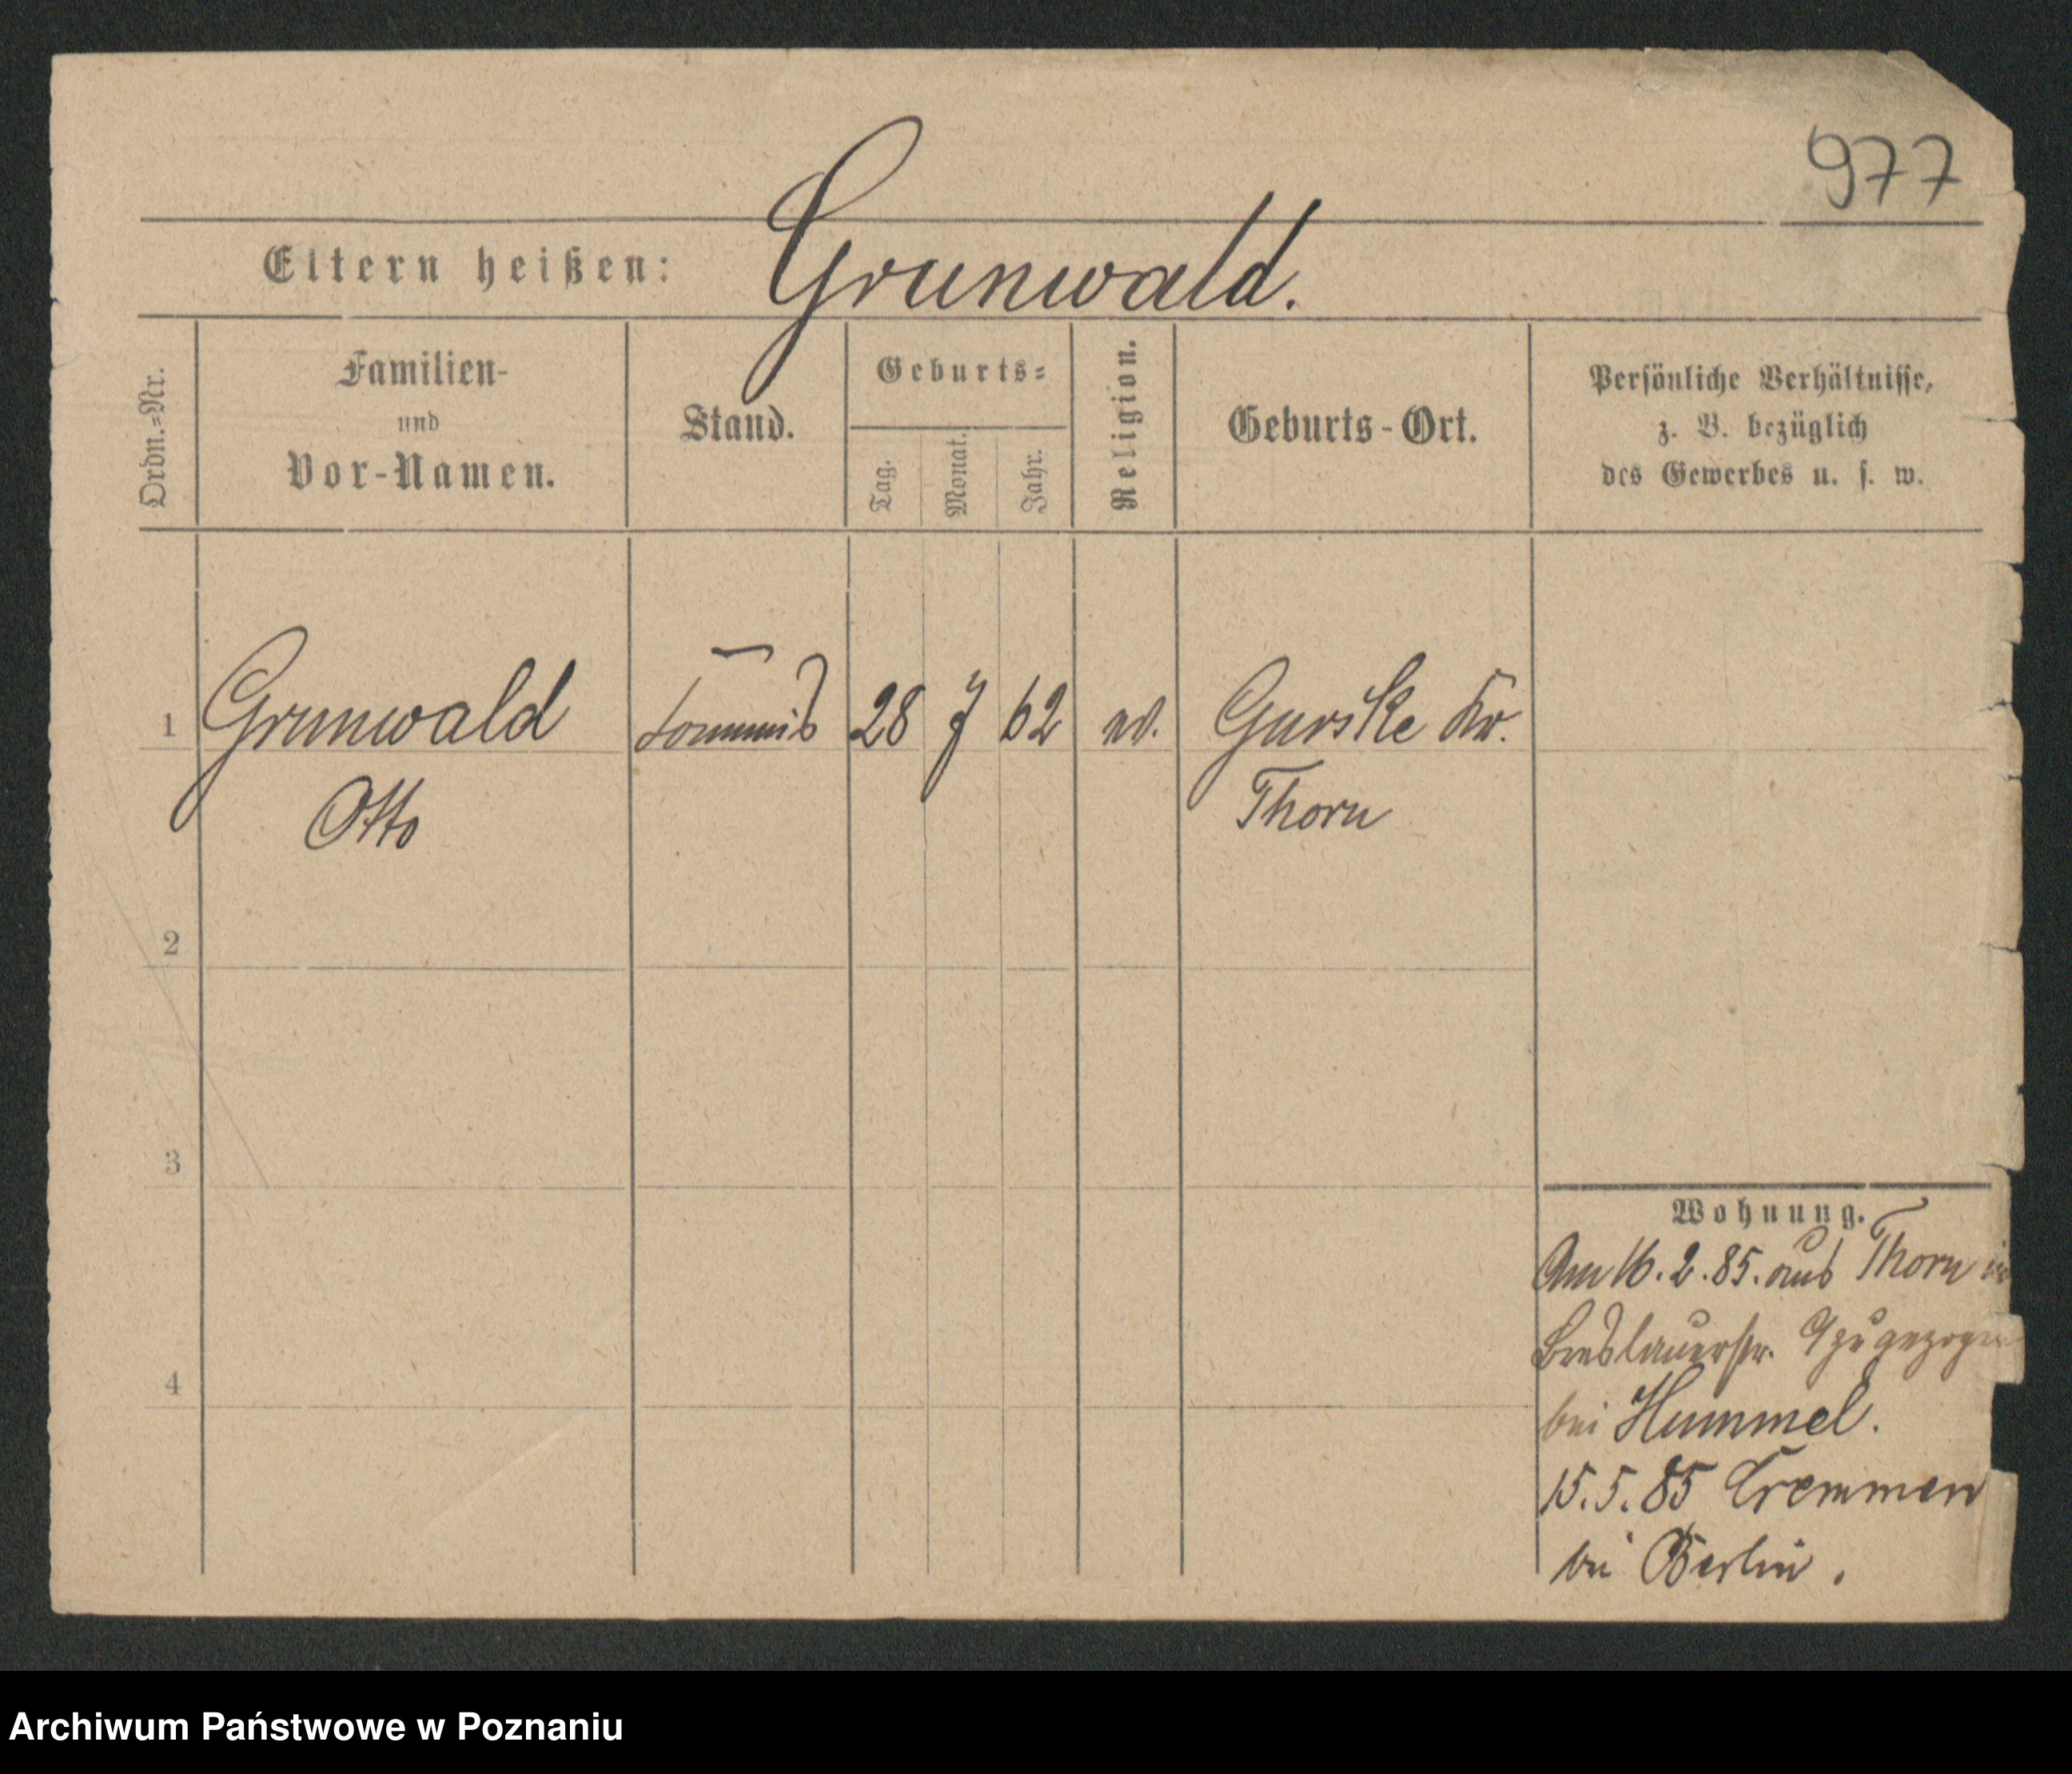 977
Eltern heißen: Grunwald.
Ordn.=Nr.
Familien-
und
Vor-Namen.
Stand.
Geburts=
Tag.
Monat.
Jahr.
Religion.
Geburts-Ort.
Persönliche Verhältnisse,
z. B. bezüglich
des Gewerbes u. s. w.
1 Grunwald Commis 28 7 62 ev. Gurske Kr.
Otto Thorn
2
3
4
Wohnung.
Am 16.2.85. aus Thorn in
Breslauerstr. 9 zugezogen
bei Hummel.
15.5.85 Cremmen
bei Berlin.
Archiwum Państwowe w Poznaniu